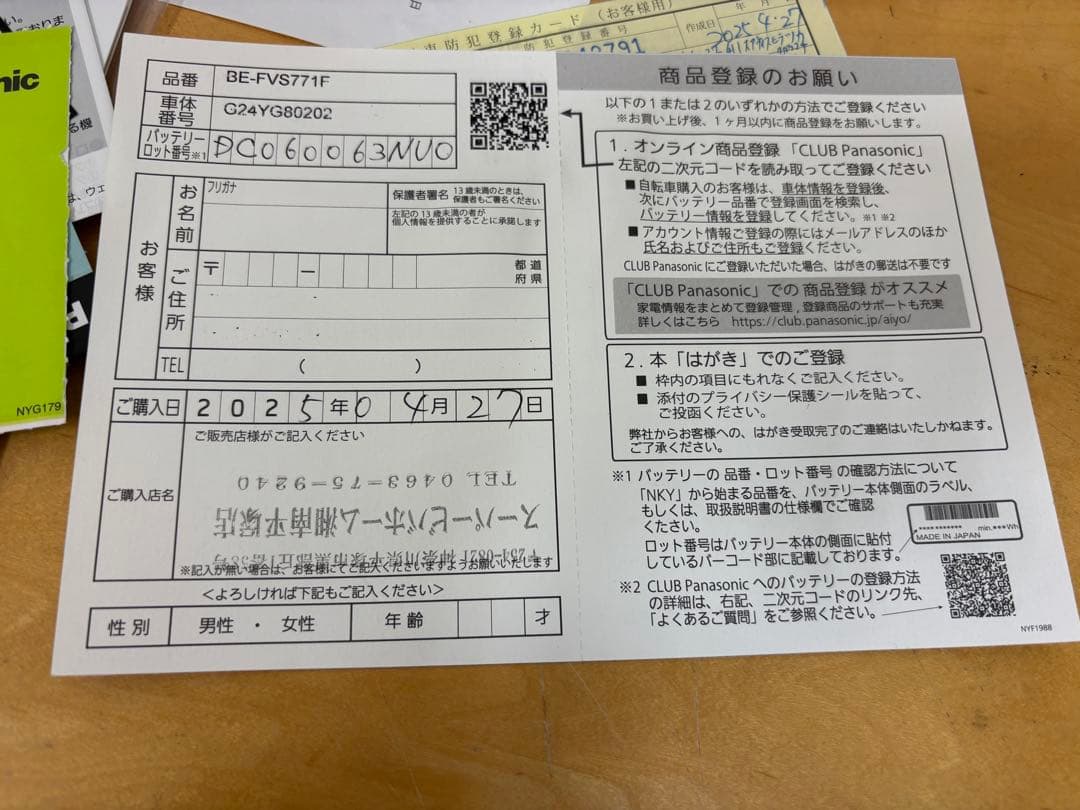 nic
NYG179
防犯登録カード（お客様用）
防犯登録番号
作成日
年 月
2025 4.27
品番 BE-FVS771F
車体番号 G24YG80202
バッテリーロット番号※1 DC060063NU0
お客様
お名前
フリガナ
保護者署名 13歳未満のときは、保護者もご署名ください
左記の13歳未満の者が
個人情報を提供することに承諾します
ご住所
〒 － 都道府県
TEL （ ）
ご購入日 2025年04月27日
ご購入店名
ご販売店様がご記入ください
TEL 0463-75-9240
スーパービバホーム湘南平塚店
※記入が無い場合は、お客様にてご記入くださいますようお願いいたします
＜よろしければ下記もご記入ください＞
性別 男性 ・ 女性 年齢 才
商品登録のお願い
以下の1または2のいずれかの方法でご登録ください
※お買い上げ後、1ヶ月以内に商品登録をお願いします。
1．オンライン商品登録「CLUB Panasonic」
左記の二次元コードを読み取ってご登録ください
■自転車購入のお客様は、車体情報を登録後、
次にバッテリー品番で登録画面を検索し、
バッテリー情報を登録してください。※1 ※2
■アカウント情報ご登録の際にはメールアドレスのほか
氏名およびご住所もご登録ください。
CLUB Panasonic にご登録いただいた場合、はがきの郵送は不要です
「CLUB Panasonic」での 商品登録 がオススメ
家電情報をまとめて登録管理 , 登録商品のサポートも充実
詳しくはこちら https://club.panasonic.jp/aiyo/
2．本「はがき」でのご登録
■ 枠内の項目にもれなくご記入ください。
■ 添付のプライバシー保護シールを貼って、
ご投函ください。
弊社からお客様への、はがき受取完了のご連絡はいたしかねます。
ご了承ください。
※1 バッテリーの 品番・ロット番号 の確認方法について
「NKY」から始まる品番を、バッテリー本体側面のラベル、
もしくは、取扱説明書の仕様欄でご確認
ください。
ロット番号はバッテリー本体の側面に貼付
しているバーコード部に記載しております。
min.***Wh
MADE IN JAPAN
※2 CLUB Panasonic へのバッテリーの登録方法
の詳細は、右記、二次元コードのリンク先、
「よくあるご質問」をご参照ください。
NYF1988